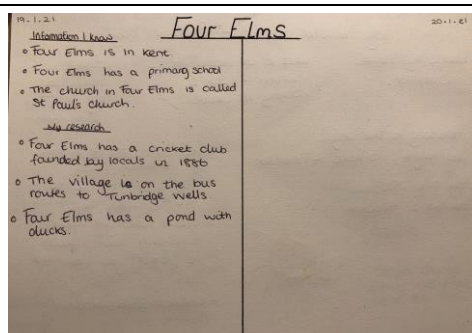 19.1.21
Four Elms
20.1.21
Information I know
Four Elms is in Kent.
Four Elms has a primary school
The church in Four Elms is called
St Paul's church.
My research
Four Elms has a cricket club
founded by locals in 1886
The village is on the bus
routes to Tunbridge Wells
Four Elms has a pond with
ducks.